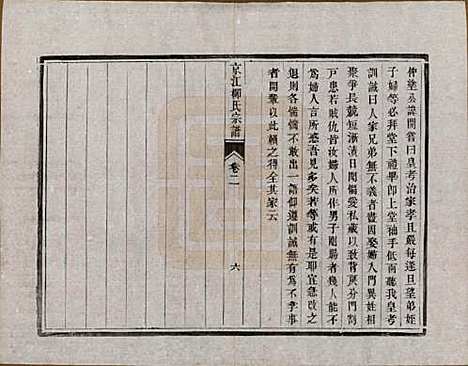 仲塗公諱開嘗曰皇考治家孝且嚴每逢旦望弟姪
子婦等必拜堂下禮畢即上堂袖手低面聽我皇考
訓誡曰人家兄弟無不義者盡因娶婦入門異姓相
聚爭長競短漸漬日聞偏愛私藏以致背戾分門
戶患若賊仇皆汝婦人所作男子剛腸者幾人能不
為婦人言所惑吾見多矣若等或有是耶宜急改之
退則各惴惴不敢出一語仰遵訓誡無有為不孝事
者開輩以此賴之得全其家云
京江柳氏宗譜
卷二
六